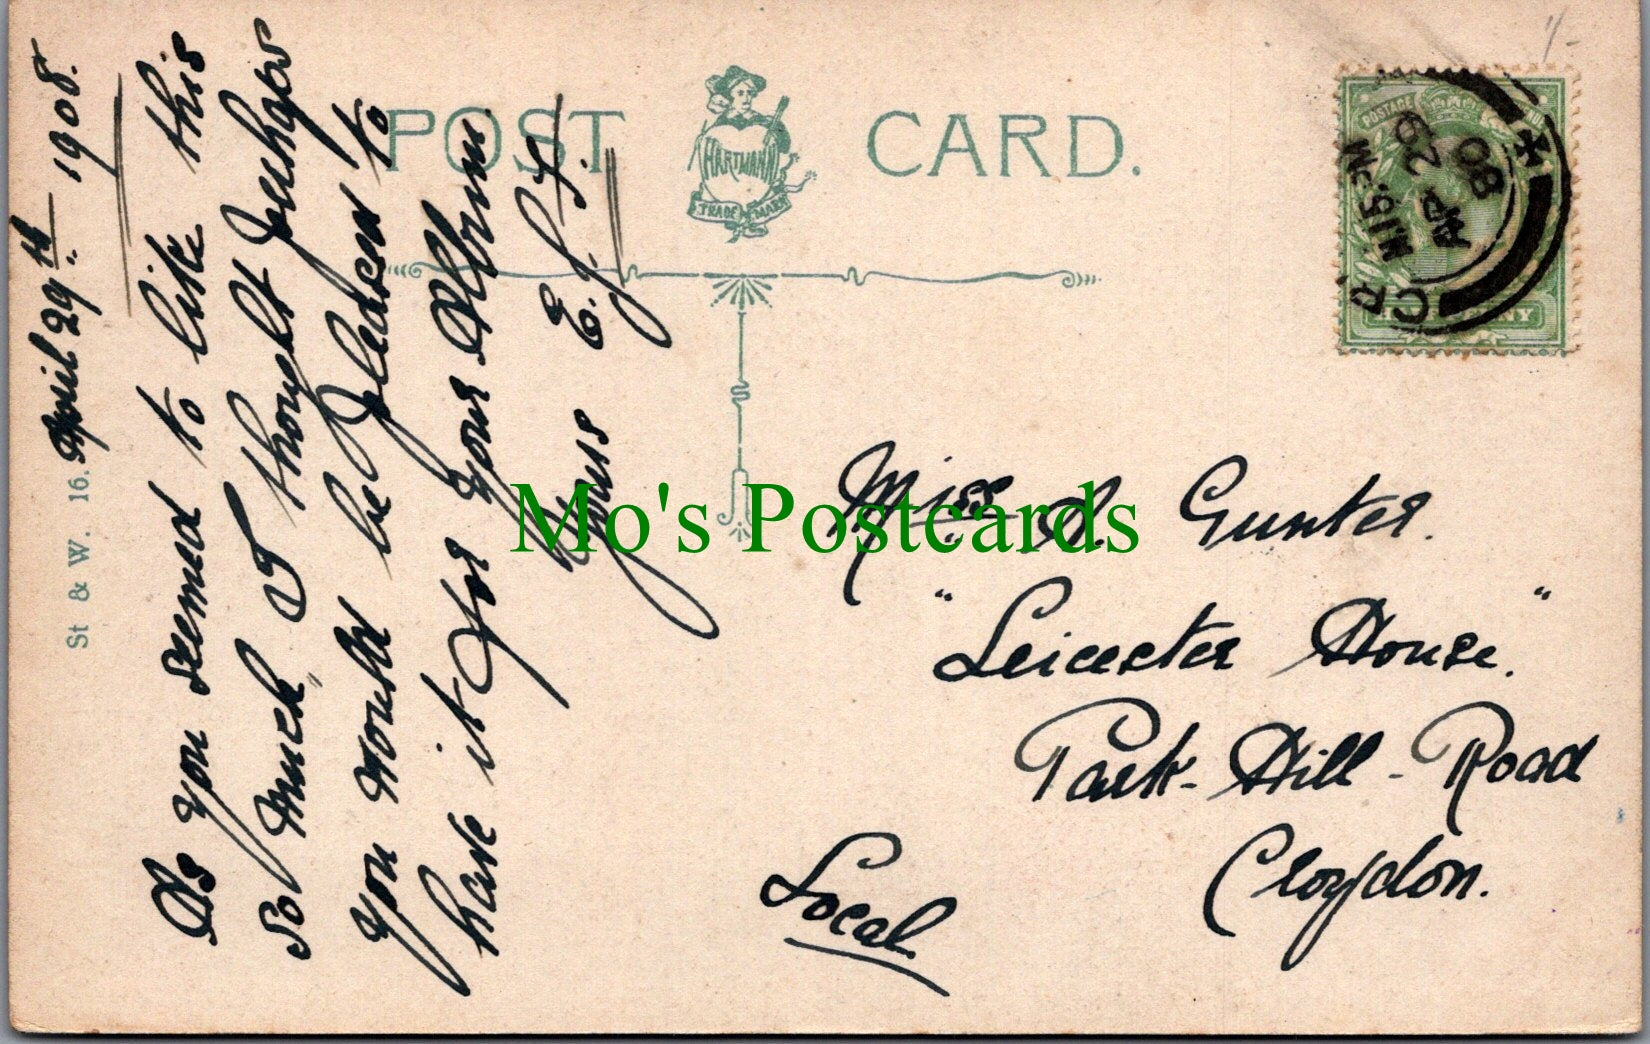 POST CARD.
HARTMANN
TRADE MARK
St & W. 16.
April 29th 1908.
As you seemed to like this
so much I thought perhaps
you would be pleased to
have it for your Album
Yours E.J.S.
Miss A. Gunter.
"Leicester House."
Park-Hill-Road
Croydon.
Local
POSTAGE
HALFPENNY
CR
AP 29
08
Mo's Postcards